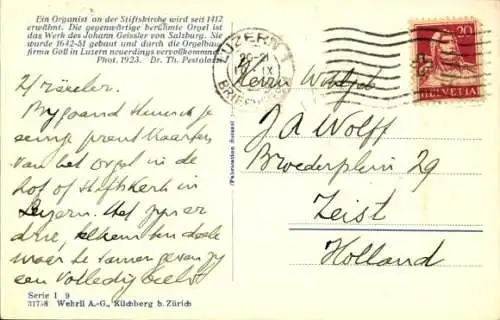 Ein Organist an der Stiftskirche wird seit 1412
erwähnt. Die gegenwärtige berühmte Orgel ist
das Werk des Johann Geissler von Salzburg. Sie
wurde 1642-51 gebaut und durch die Orgelbau-
firma Goll in Luzern neuerdings vervollkommnet.
Phot. 1923. Dr. Th. Pestalozzi
LUZERN 1
20
HELVETIA
Herrn
J A Wolff
Broederplein 29
Zeist
Holland
(Fabrication Suisse)
Bijgaand stuur ik je
prentkaarten
van het orgel in de
hof of stiftskerk in
Luzern. Het zijn er
drie,
maar te samen geven zij
een volledig beeld
Serie I 9
31758 Wehrli A.-G., Kilchberg b. Zürich